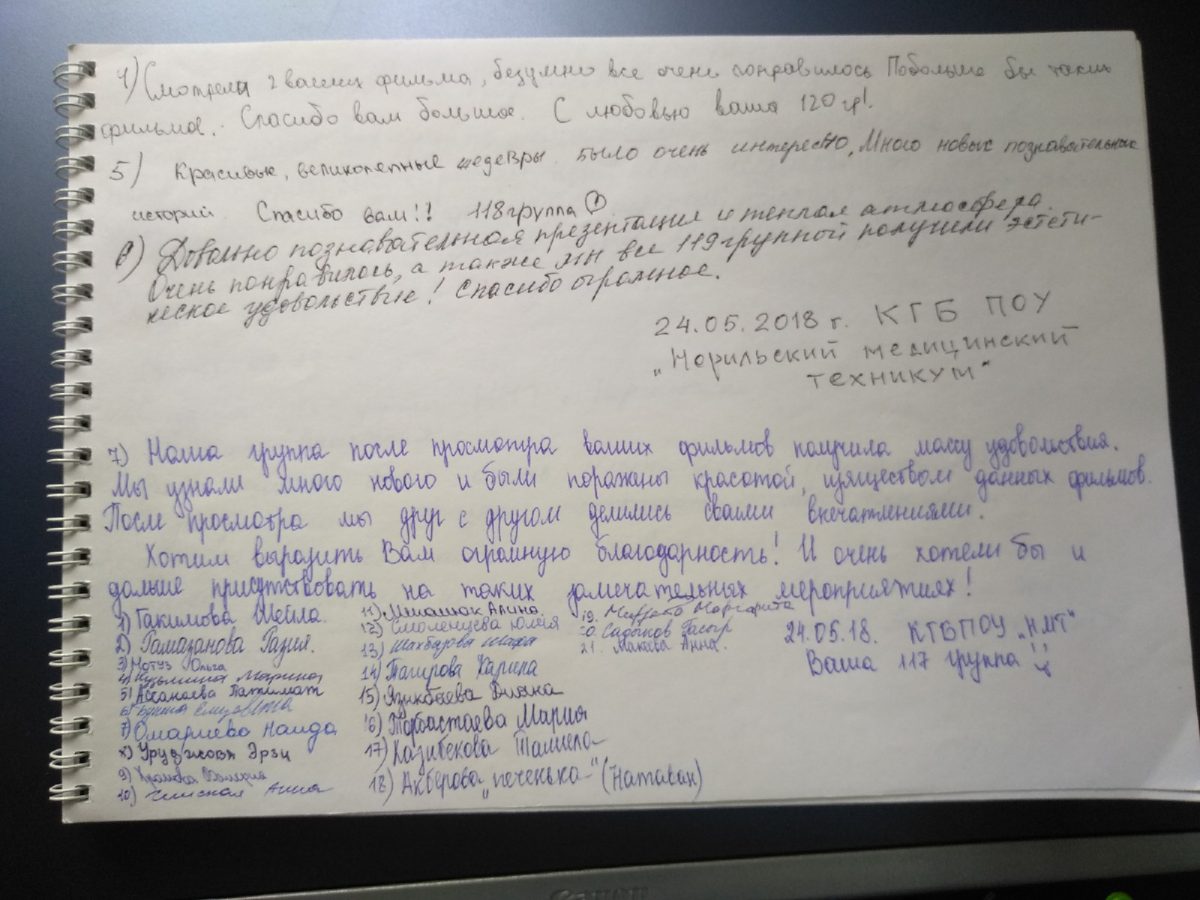 4) Смотрели 2 ваших фильма, безумно все очень понравилось Побольше бы таких
фильмов. Спасибо вам большое. С любовью ваша 120 гр!.
5) Красивые, великолепные шедевры. было очень интересно, Много новых познавательных
историй. Спасибо вам!! 118 группа
6) Довольно познавательная презентация и теплая атмосфера.
Очень понравилось, а также мы все 119 группой получили эстети-
ческое удовольствие! Спасибо огромное.
24.05.2018 г. КГБ ПОУ
„Норильский медицинский
техникум"
7) Наша группа после просмотра ваших фильмов получила массу удовольствия.
Мы узнали много нового и были поражены красотой, изяществом данных фильмов.
После просмотра мы друг с другом делились своими впечатлениями.
Хотим выразить Вам огромную благодарность! И очень хотели бы и
дальше присутствовать на таких замечательных мероприятиях!
1) Гакимова Лейла.
2) Рамазанова Разия.
3) Мотуз Ольга
4) Кузьмина Марина
5) Ассанаева Патимат
6) Елизавета
7) Омариева Наида
8) Урузмова Эрзи
9) Храмова Валерия
10) Анна
11) Алина.
12) Смоленцева Юлия
13) Шахбазова
14) Тагирова Карина
15) Языкбаева Диана
16) Торбастаева Мария
17) Казибекова Тамила
18) Акберова „печенька" (Натаван)
19. Маргарита
20. Садыков
21. Макаева Анна.
24.05.18. КГБПОУ „НМТ"
Ваша 117 группа!!